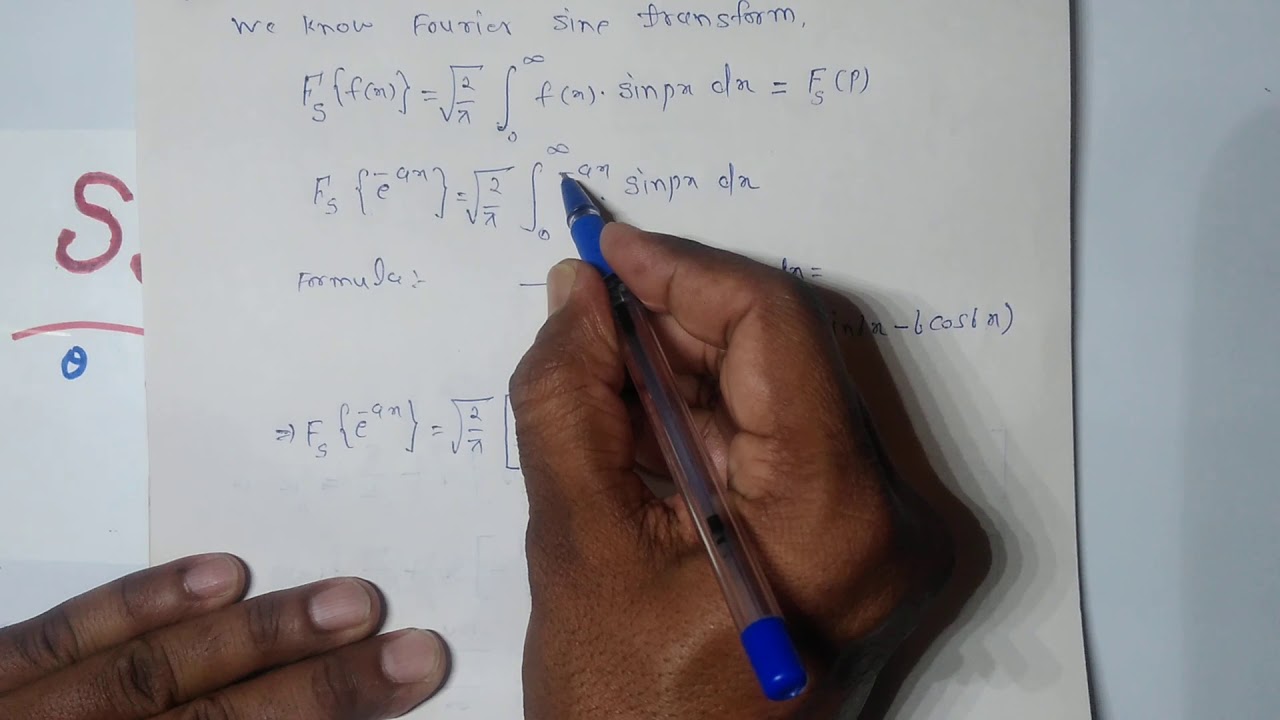 We know Fourier sine transform,
F_s{f(x)} = √(2/π) ∫_0^∞ f(x). sinpx dx = F_s(P)
F_s{e^-ax} = √(2/π) ∫_0^∞ -ax. sinpx dx
S
Formula:- dx =
inbx - b cosbx)
⇒ F_s{e^-ax} = √(2/π) [